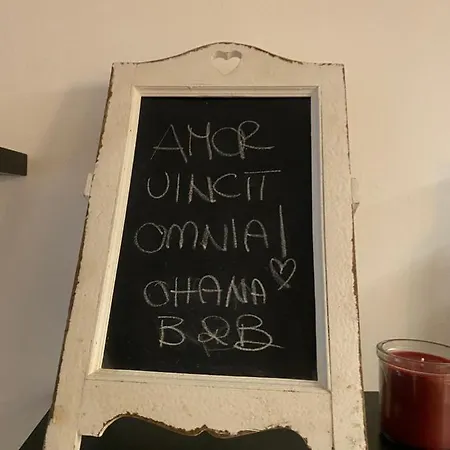 AMOR
VINCIT
OMNIA!
OHANA
B&B